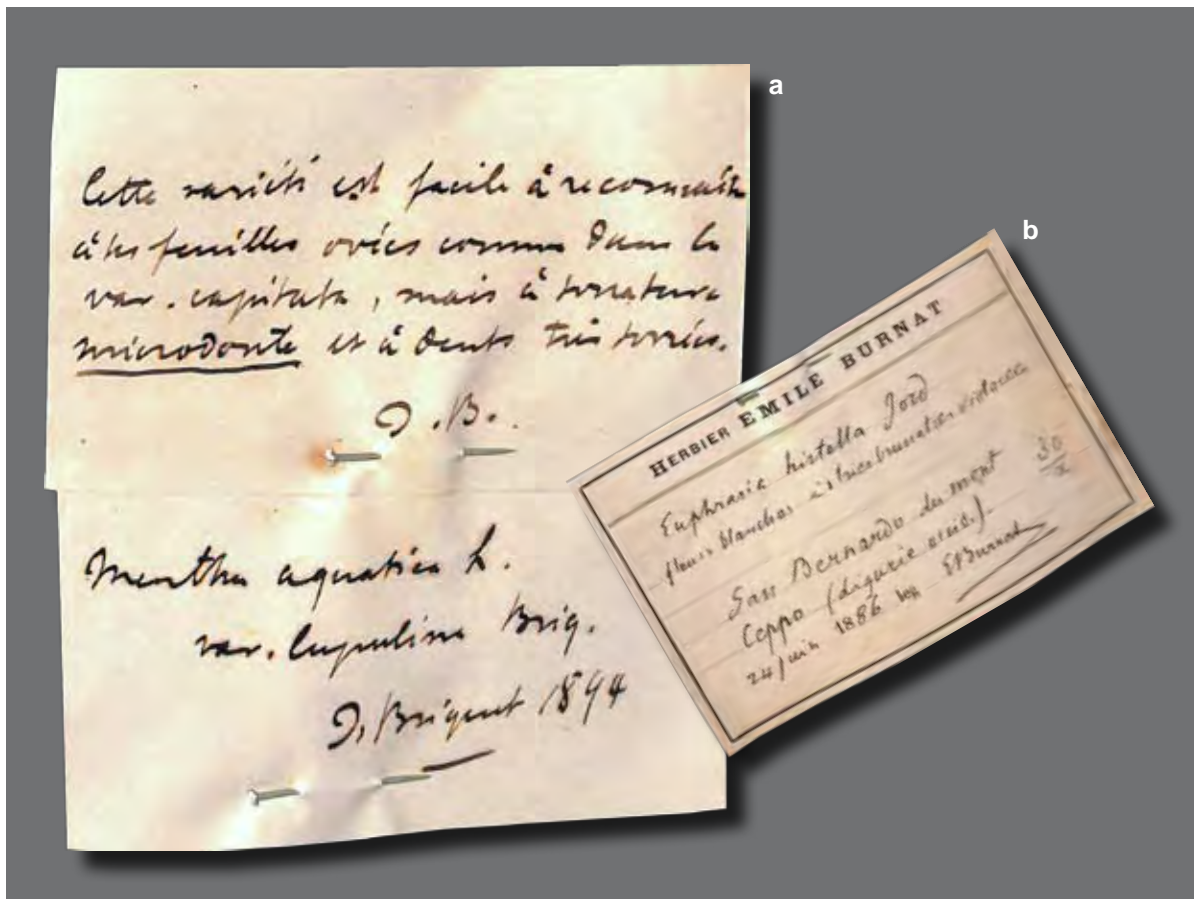 a
Cette variété est facile à reconnaître
à ses feuilles ovées comme dans la
var. capitata, mais à serrature
microdonte et à dents très serrées.
J.B.
Mentha aquatica L.
var. lupulina Briq.
J. Briquet 1894
b
HERBIER EMILE BURNAT
Euphrasia hirtella Jord
fleurs blanches violacées
30
San Bernardo du mont
Ceppo (Ligurie occid.).
24 juin 1886 EBurnat